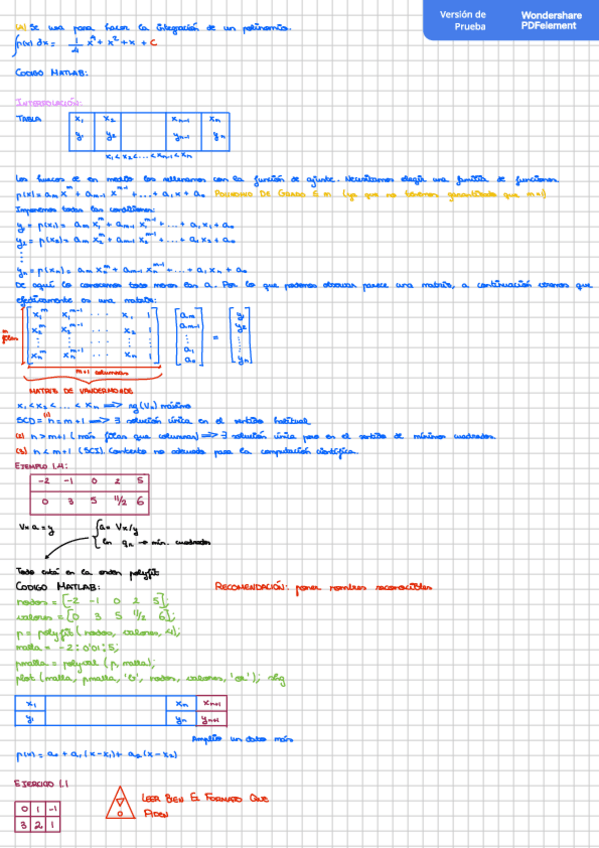 Versión de Prueba
Wondershare PDFelement
(A) Se usa para hacer la integración de un polinomio.
∫p(x) dx = 1/4 x⁴ + x² + x + C
CODIGO MATLAB:
INTERPOLACIÓN:
TABLA
x₁ x₂ xₙ₋₁ xₙ
y₁ y₂ yₙ₋₁ yₙ
x₁ < x₂ < ... < xₙ₋₁ < xₙ
Los huecos de en medio los rellenamos con la función de ajuste. Necesitamos elegir una familia de funciones.
p(x) = aₘ xᵐ + aₘ₋₁ xᵐ⁻¹ + ... + a₁x + a₀ POLINOMIO DE GRADO ≤ m (ya que no tenemos garantizado que m≠0)
Imponemos todas las condiciones:
y₁ = p(x₁) = aₘ x₁ᵐ + aₘ₋₁ x₁ᵐ⁻¹ + ... + a₁x₁ + a₀
y₂ = p(x₂) = aₘ x₂ᵐ + aₘ₋₁ x₂ᵐ⁻¹ + ... + a₁x₂ + a₀
⋮
yₙ = p(xₙ) = aₘ xₙᵐ + aₘ₋₁ xₙᵐ⁻¹ + ... + a₁xₙ + a₀
De aquí lo conocemos todo menos las a. Por lo que podemos observar parece una matriz, a continuación vemos que
efectivamente es una matriz:
x₁ᵐ x₁ᵐ⁻¹ ... x₁ 1 aₘ y₁
x₂ᵐ x₂ᵐ⁻¹ ... x₂ 1 aₘ₋₁ y₂
⋮ ⋮ ⋮ ⋮ a₁ = ⋮
xₙᵐ xₙᵐ⁻¹ ... xₙ 1 a₀ yₙ
filas
m+1 columnas
MATRIZ DE VANDERMONDE
x₁ < x₂ < ... < xₙ ⟹ rg(Vₙ) máximo
SCD = (1) n = m+1 ⟹ ∃ solución única en el sentido habitual
(2) n > m+1 (más filas que columnas) ⟹ ∃ solución única pero en el sentido de mínimos cuadrados.
(3) n < m+1 (SCI). Contexto no adecuado para la computación científica.
EJEMPLO 1.4:
-2 -1 0 2 5
0 3 5 11/2 6
V*a = y
a = V\y
min. cuadrados
Todo está en la orden polyfit
CODIGO MATLAB:
RECOMENDACIÓN: poner nombres reconocibles
nodos = [-2 -1 0 2 5];
valores = [0 3 5 11/2 6];
p = polyfit (nodos, valores, 4);
malla = -2:0'01:5;
pmalla = polyval (p, malla);
plot (malla, pmalla, 'b', nodos, valores, 'or');
x₁ xₙ xₙ₊₁
y₁ yₙ yₙ₊₁
Amplío un dato más
p(x) = a₀ + a₁(x-x₁) + a₂(x-x₂)
EJERCICIO 1.1
0 1 -1
3 2 1
LEER BIEN EL FORMATO QUE
PIDEN